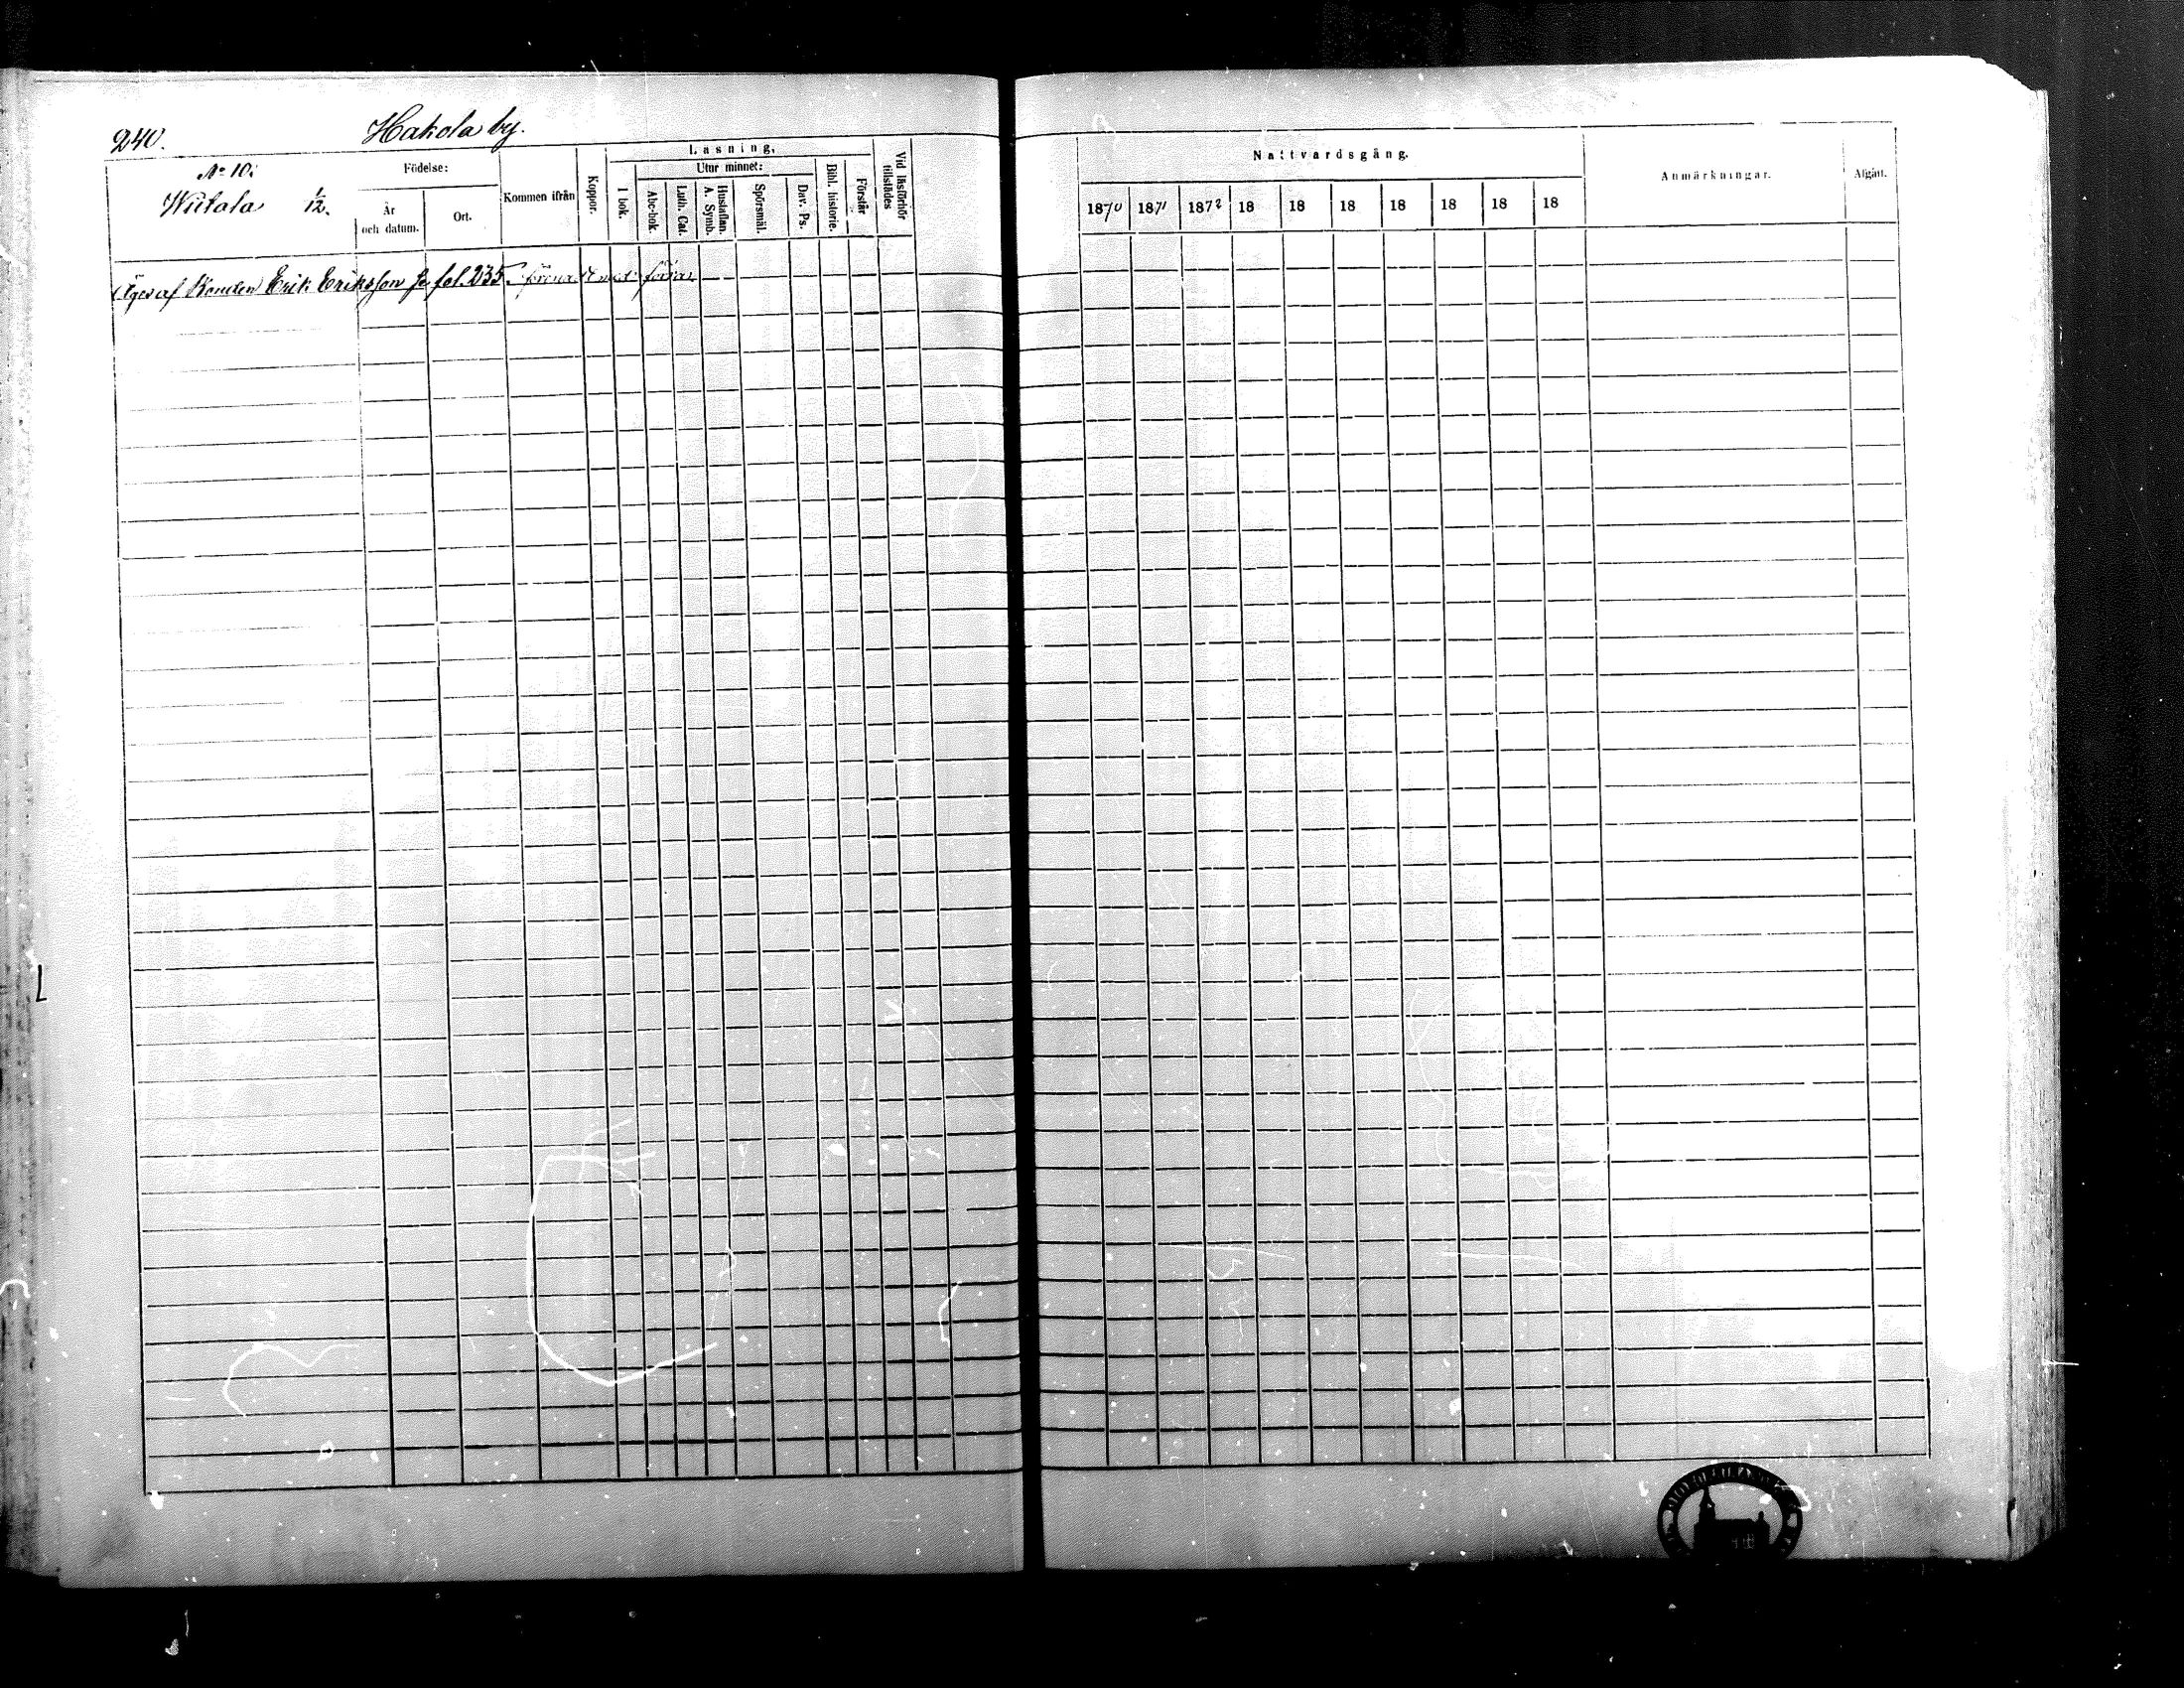 240.
Hakola by.
No 10.
Wiitala 1/12.
Födelse:
År
och datum.
Ort.
Kommen ifrån
Koppor.
Läsning,
I bok.
Utur minnet:
Abc-bok.
Luth. Cat.
Hustaflan.
A. Symb.
Spörsmål.
Dav. Ps.
Bibl. historie.
Förstår
Vid läsförhör
tillstädes
Nattvardsgång.
1870 1871 1872 18 18 18 18 18 18 18
Anmärkningar.
Afgått.
Äges af Bonden Erik Eriksson på fol. 235.